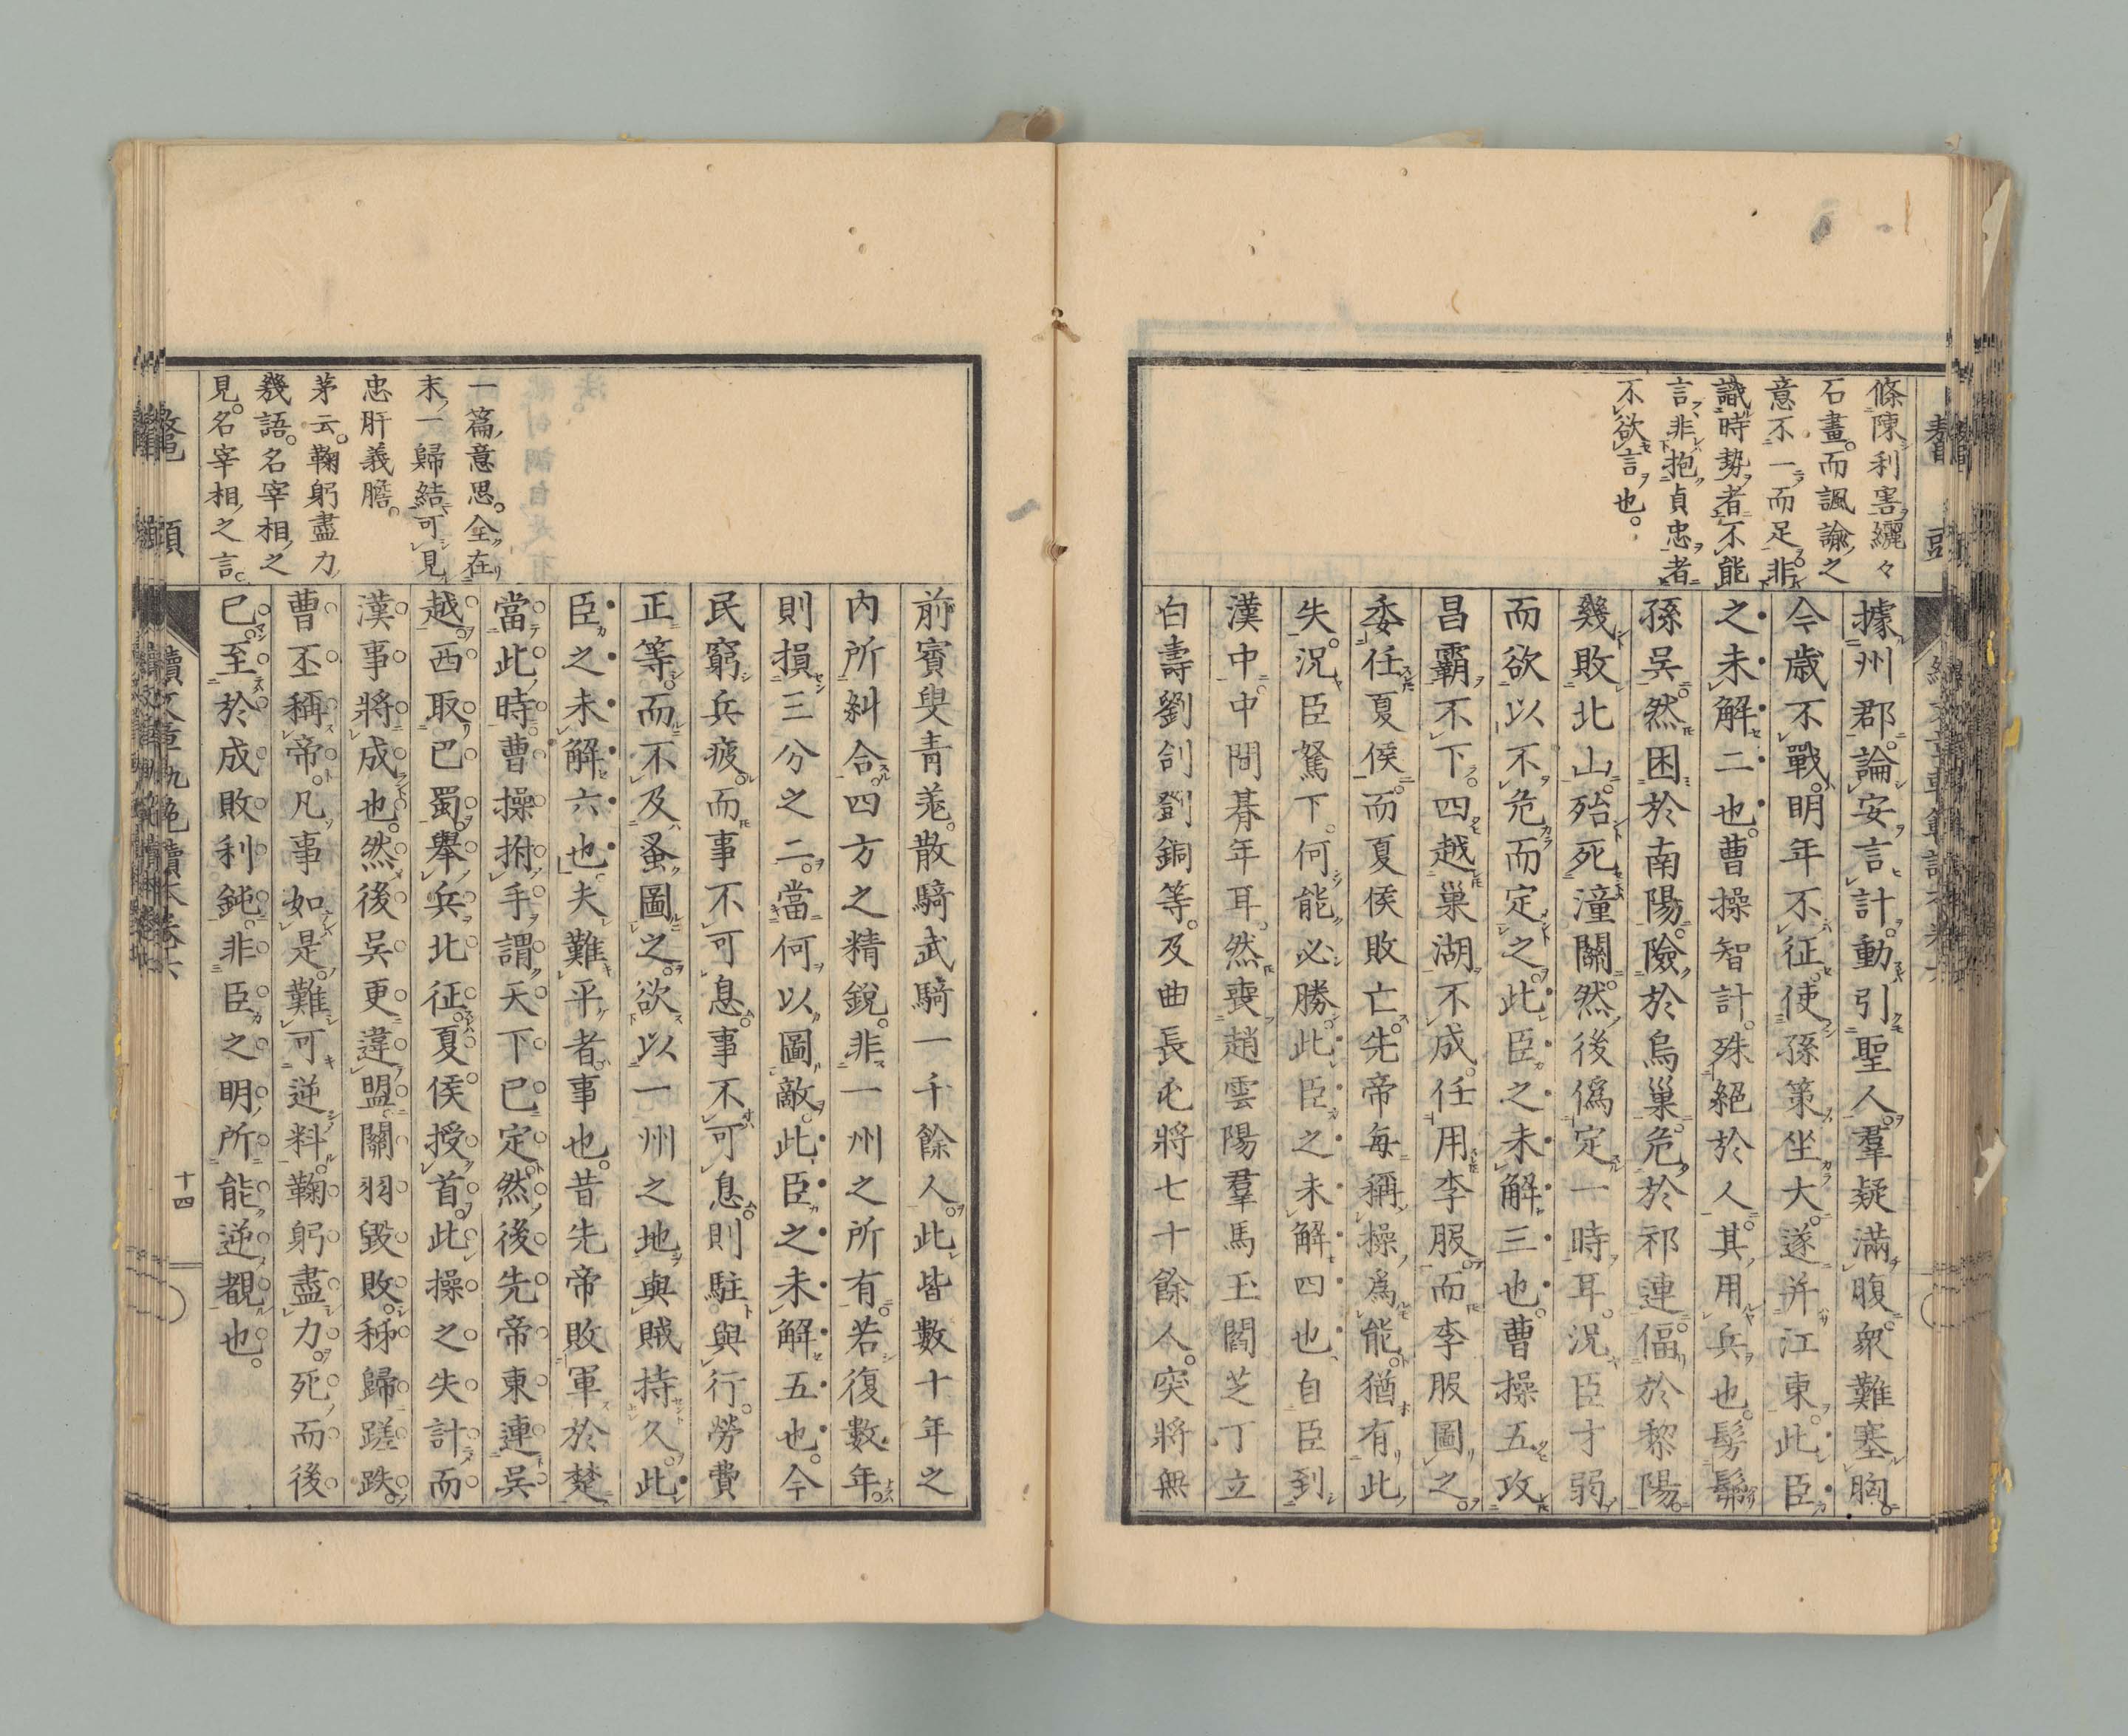 條陳利害纚々
石畫。而諷諭之
意不一而足。非
識時勢者不能
言、非抱貞忠者
不欲言也。
據州郡。論安言計。動引聖人。羣疑滿腹。衆難塞胸。
今歳不戰。明年不征。使孫策坐大。遂并江東。此臣
之未解二也。曹操智計。殊絕於人。其用兵也。髣髴
孫吳。然困於南陽。險於烏巢。危於祁連。偪於黎陽。
幾敗北山。殆死潼關。然後僞定一時耳。況臣才弱。
而欲以不危而定之。此臣之未解三也。曹操五攻
昌霸不下。四越巢湖不成。任用李服。而李服圖之。
委任夏侯。而夏侯敗亡。先帝每稱操爲能。猶有此
失。況臣駑下。何能必勝。此臣之未解四也。自臣到
漢中。中間朞年耳。然喪趙雲陽羣馬玉閻芝丁立
白壽劉郃鄧銅等。及曲長屯將七十餘人。突將無
前賓叟青羗。散騎武騎一千餘人。此皆數十年之
内所糾合四方之精銳。非一州之所有。若復數年。
則損三分之二。當何以圖敵。此臣之未解五也。今
民窮兵疲。而事不可息。事不可息。則駐與行。勞費
正等。而不及蚤圖之。欲以一州之地與賊持久。此
臣之未解六也。夫難平者事也。昔先帝敗軍於楚
當此時。曹操拊手。謂天下已定。然後先帝東連吳
越。西取巴蜀。舉兵北征。夏侯授首。此操之失計。而
漢事將成也。然後吳更違盟。關羽毀敗。秭歸蹉跌。
曹丕稱帝。凡事如是。難可逆料。鞠躬盡力。死而後
已。至於成敗利鈍。非臣之明所能逆覩也。
一篇意思。全在
末、一歸結可見
忠肝義膽。
茅云。鞠躬盡力
幾語。名宰相之
見。名宰相之言。
十四